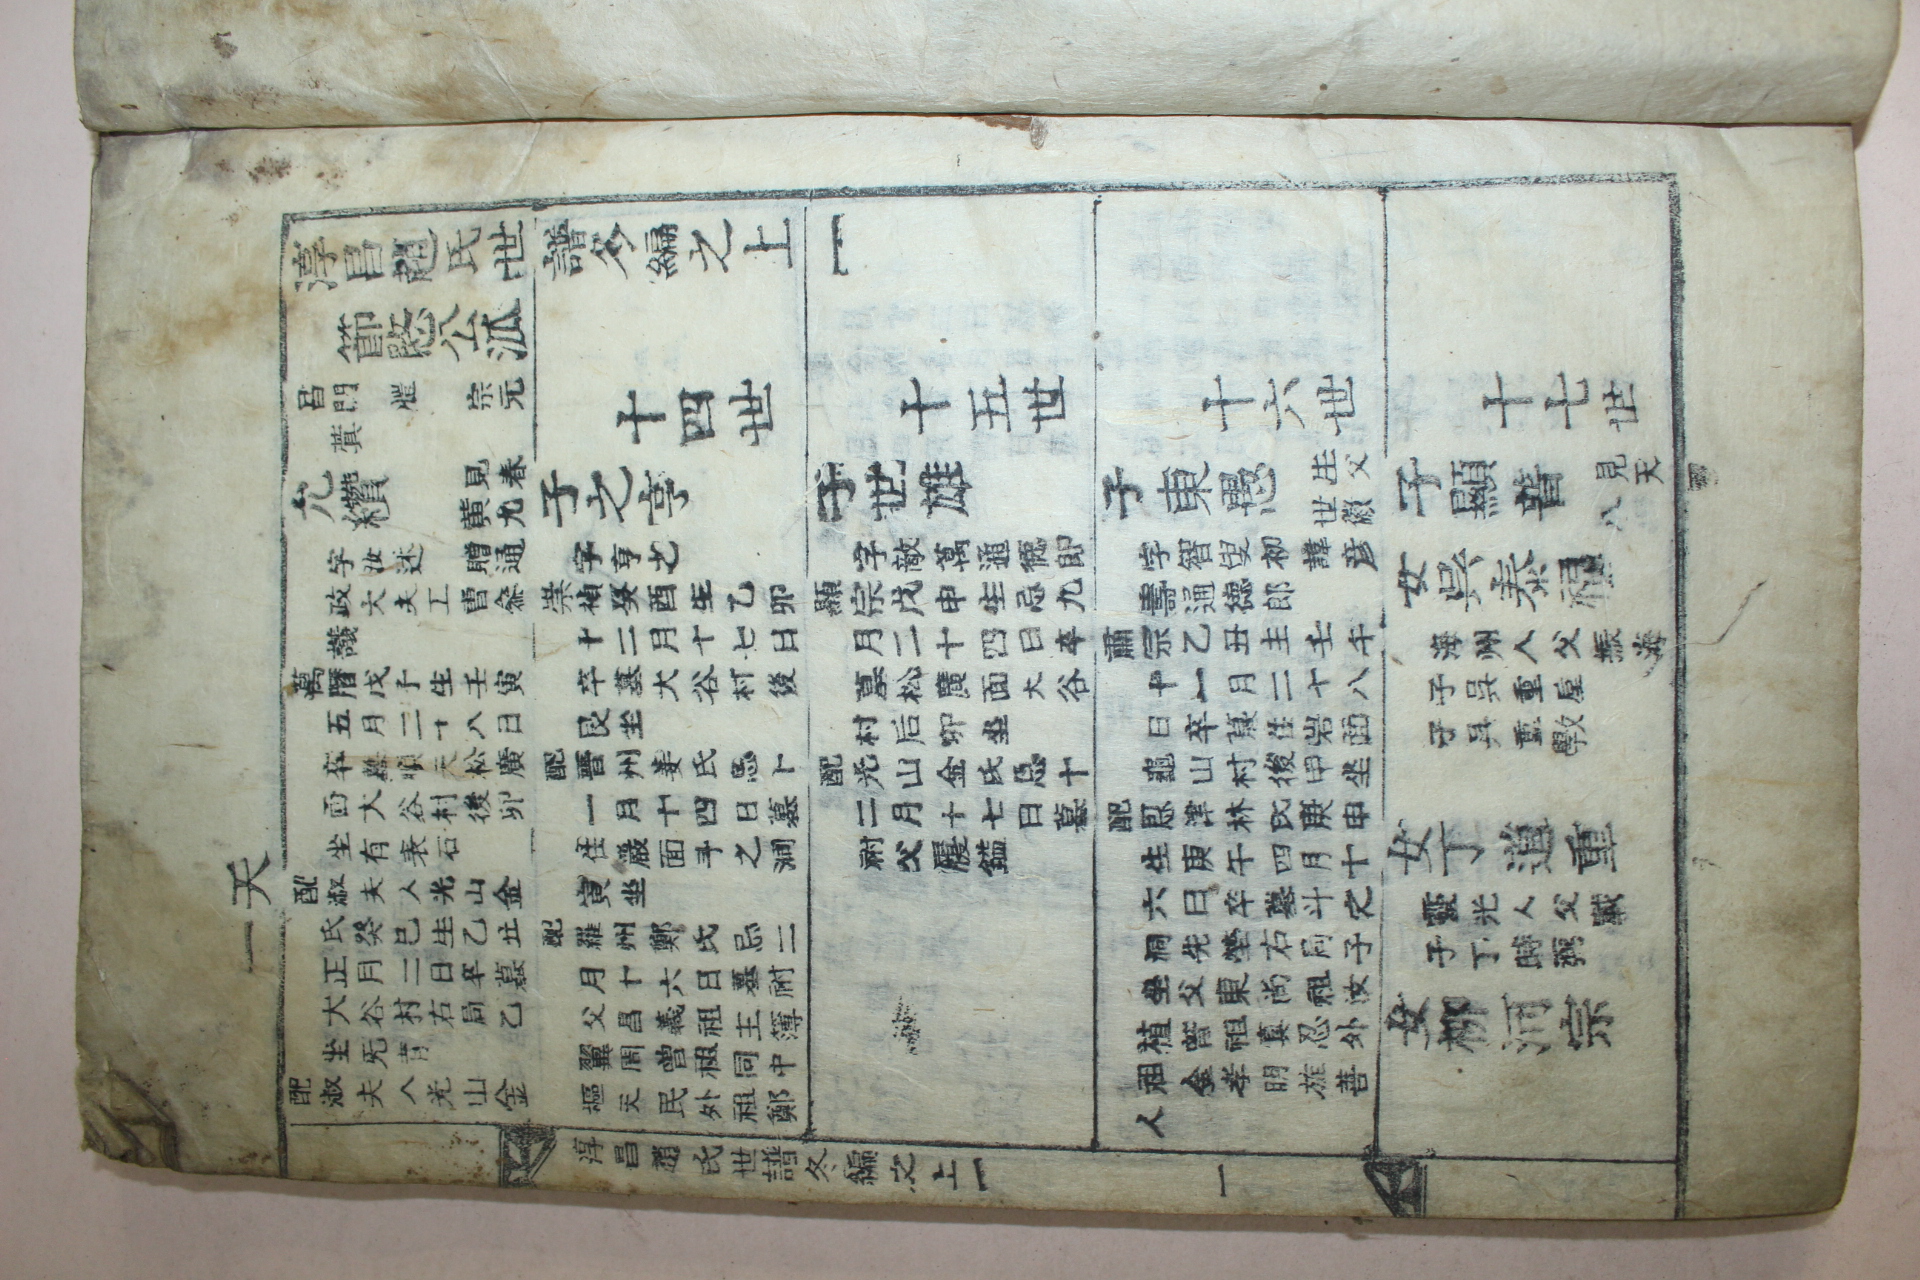 天一
淳昌趙氏世譜冬編之上
節愍公派
昌門 愷 宗元
蓂
允纘 見春黃九
字汝述 贈通
政大夫工曹叅
議
萬曆戊子生壬寅
五月二十八日
卒墓順天松廣
面大谷村後卯
坐有表石
配淑夫人光山金
氏癸巳生乙丑
正月二日卒墓
大谷村右局乙
坐
配淑夫人光山金
十四世
子之亨
字亨之
崇禎癸酉生乙卯
十二月十七日
卒墓大谷村後
艮坐
配晋州姜氏忌卜
一月十四日墓
住嚴面斗之洞
寅坐
配羅州鄭氏忌二
月十六日墓祔
父昌義祖主簿
翼周曾祖同中
樞天民外祖鄭
十五世
子世雄
字敵萬通德郎
顯宗戊申生忌九
月二十四日卒
墓松廣面大谷
村后卯坐
配光山金氏忌十
二月十七日墓
祔父履鎰
十六世
子東愚 生父世徽
字智叟初諱彦
壽通德郎
肅宗乙丑生壬午
十一月二十八
日卒墓住岩面
龜山村後甲坐
配恩津林氏庚申
生庚午四月十
六日卒墓斗之
洞先塋右局子
坐父東尙祖汝
植曾祖眞忍外
祖金孝明旌善
人
十七世
子顯普 見天八
女吳泰福
海州人父振海
子吳重垕
子吳重斆
女丁道重
靈光人父載
子丁時弼
女柳河宗
淳昌趙氏世譜冬編之上
一